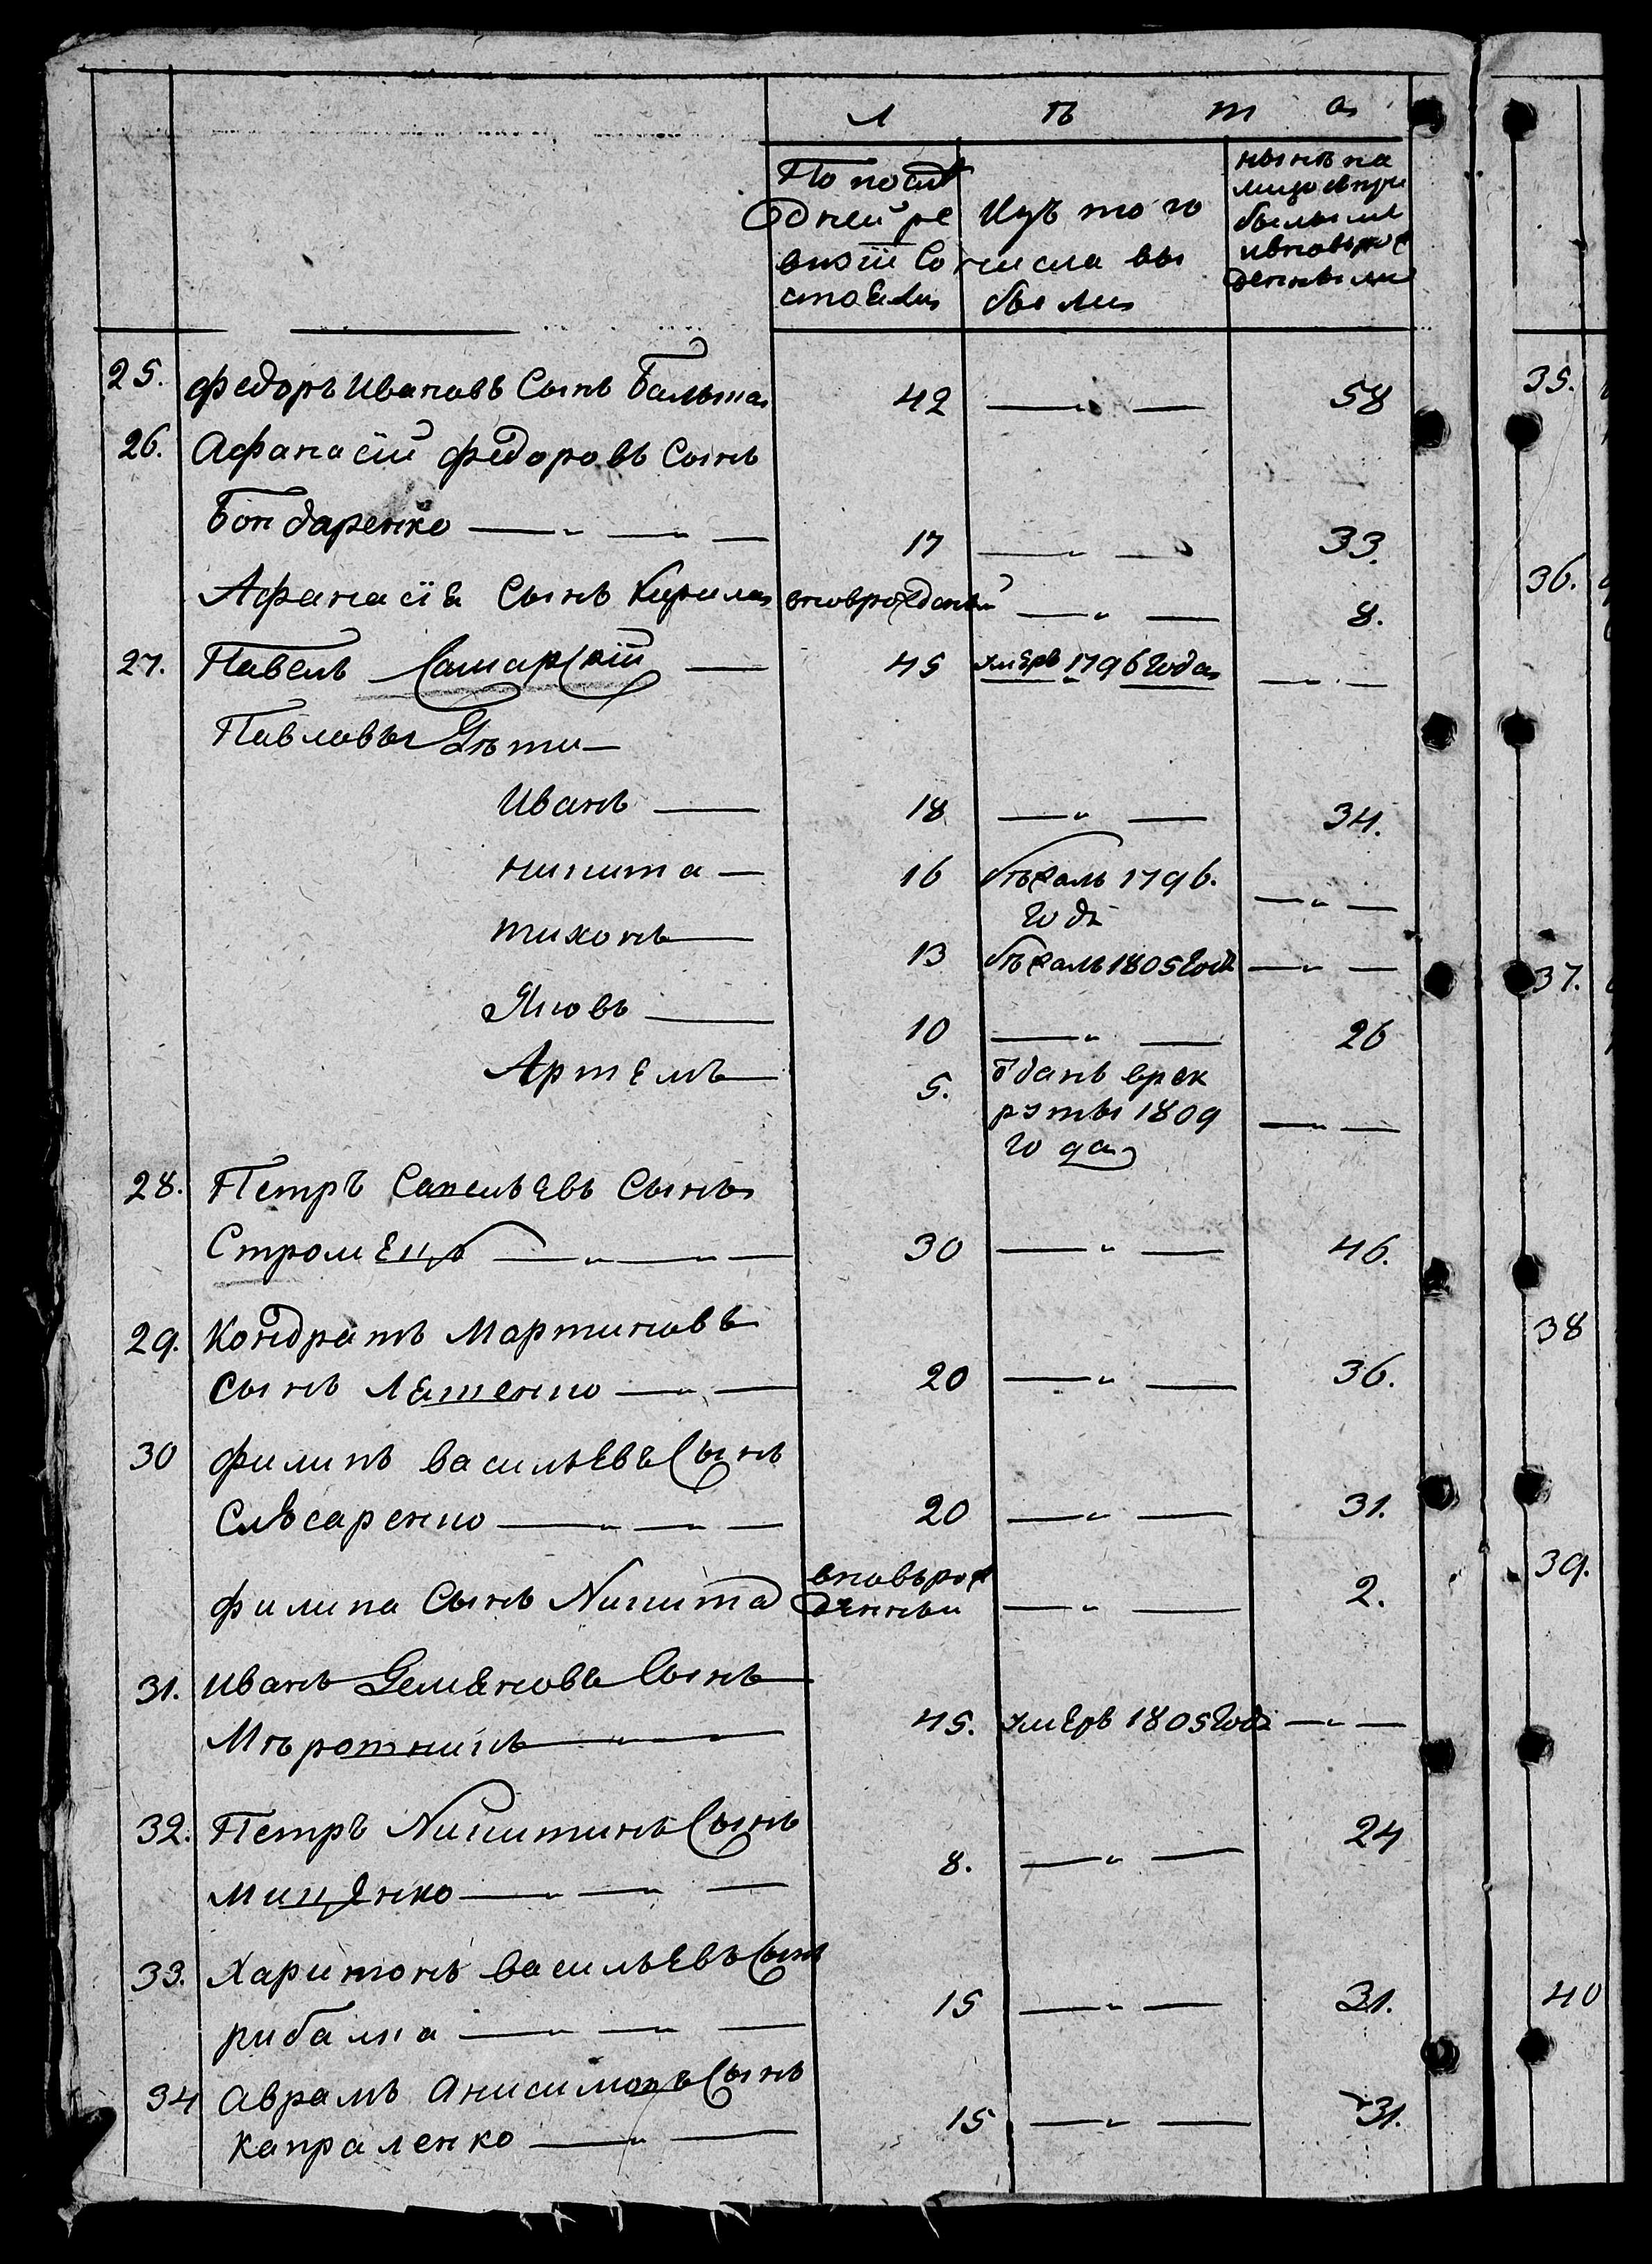 л ѣ т а
По послѣ
дней ре
визіи Со
стояли
Изъ того
числа вы
были
нынѣ на
лицо спри
былыми
ивновьрож
денными
25. федоръ Ивановъ Сынъ Балыта 42 —„— 58
26. Афанасій федоровъ Сынъ
Бондаренко —„—„— 17 —„— 33.
Афанасія Сынъ Кирила вновророжденный —„— 8.
27. Павелъ Самарскій — 45 умеръ 1796 года —„—
Павловы Дѣти —
Иванъ — 18 —„— 34.
никита — 16 бѣжалъ 1796. —„—
годꙋ
тихонъ — 13 бѣжалъ 1805 годꙋ —„—
Яковъ — 10 —„— 26
Артемъ — 5. ѿданъ врек
руты 1809 —„—
года
28. Петръ Савельевъ Сынъ
Стромецъ —„—„— 30 —„— 46.
29. Кондратъ Мартиновъ
Сынъ Лященко —„— 20 —„— 36.
30 филипъ васильевъ Сынъ
Слѣсаренко —„—„— 20 —„— 31.
филипа Сынъ Никита вновьрож
денный —„— 2.
31. иванъ Демяновъ Сынъ
Мѣротникъ —„— 45. умеръ 1805 годꙋ —„—
32. Петръ Никитинъ Сынъ
Мищенко —„—„— 8. —„— 24
33. Харитонъ васильевъ Сынъ
рибалка —„—„— 15 —„— 31.
34 Аврамъ Анисимовъ Сынъ
Капраленко —„— 15 —„— 31.
35.
36.
37.
38
39.
40